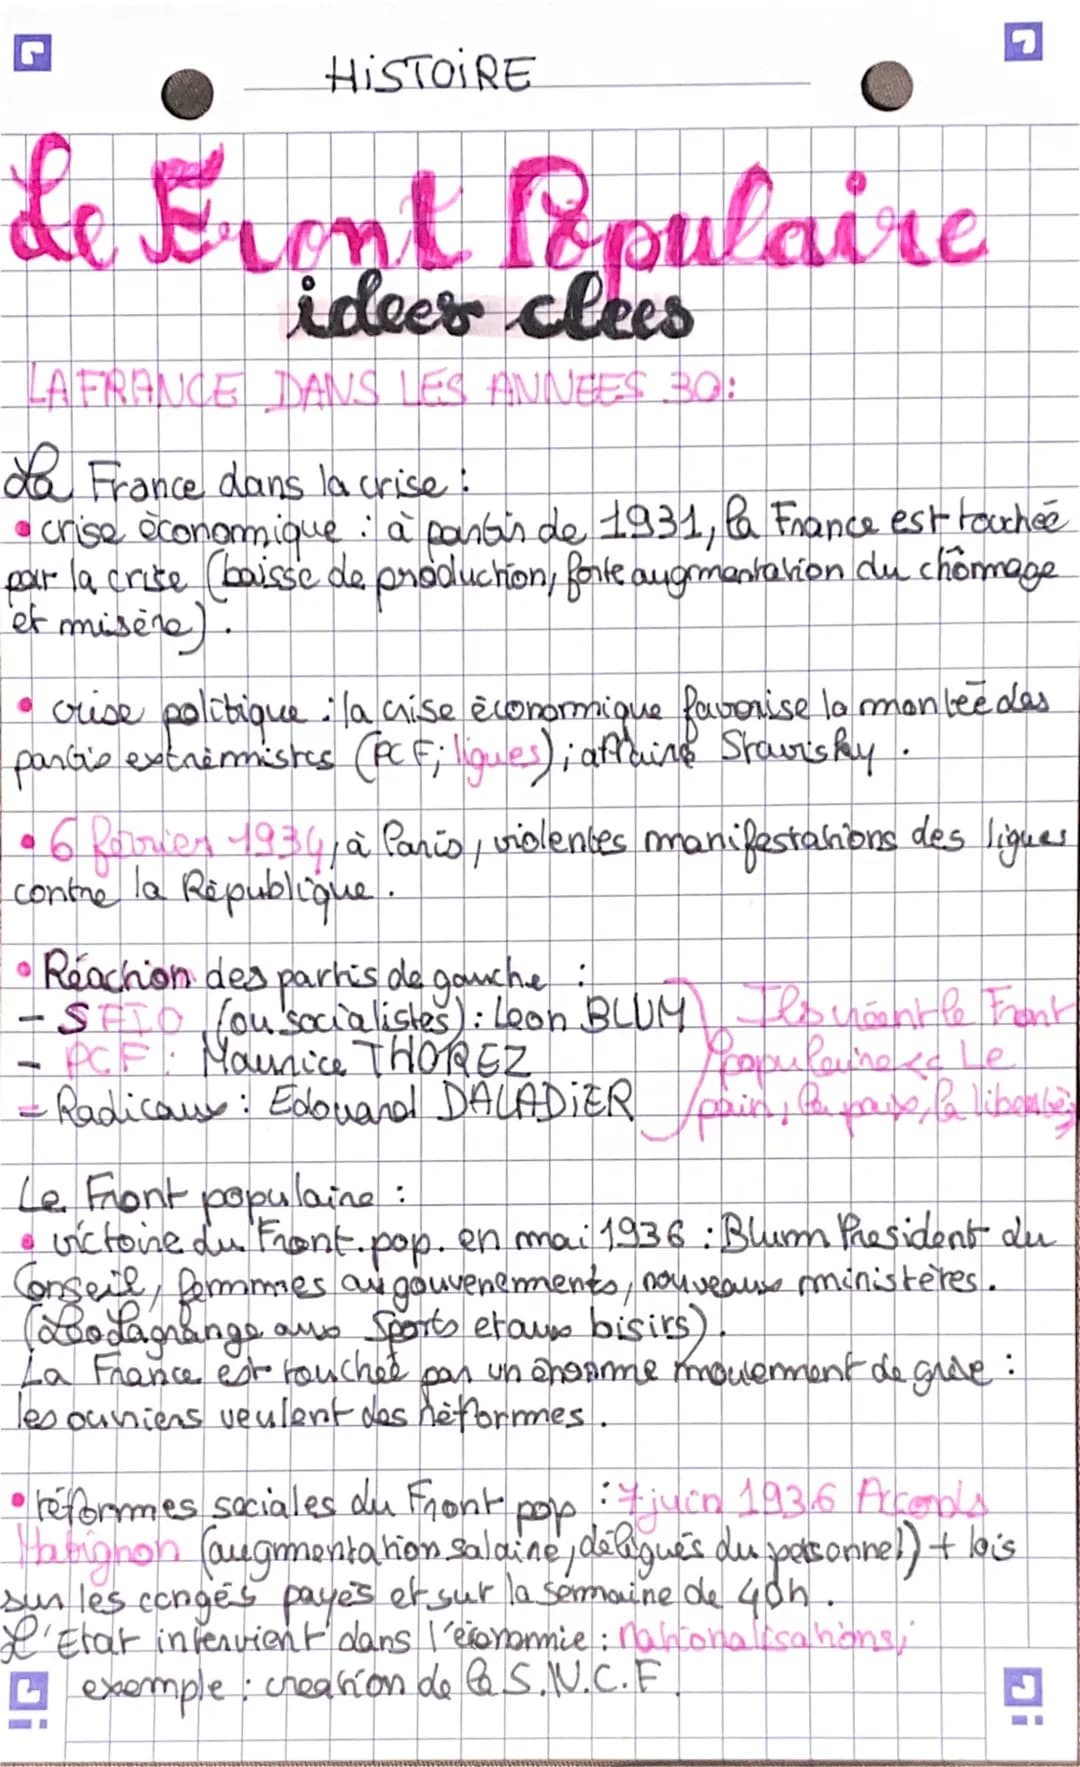 HISTOIRE
Le Front Populaire
idees clees
LA FRANCE DANS LES ANNEES 30:
La France dans la crise :
• crise économique : à partir de 1931, la France est touchée
par la crise (baisse de production, forte augmentation du chômage
et misère).
• crise politique : la crise économique favorise la montée des
partis extrémistes (PCF; ligues); affaire Stavisky.
• 6 février 1934, à Paris, violentes manifestations des ligues
contre la République.
• Réaction des partis de gauche :
- SFIO (ou socialistes) : Leon BLUM
- PCF : Maurice THOREZ
- Radicaux : Edouard DALADIER
Ils créent le Front
Populaire << Le
pain, la paix, la liberté>>
Le Front populaire :
• victoire du Front. pop. en mai 1936 : Blum President du
Conseil, femmes au gouvenements, nouveaux ministères.
(Léo Lagrange aux Sports et aux loisirs).
La France est touchée par un énorme mouvement de grève :
les ouvriers veulent des réformes.
• réformes sociales du Front pop : 7 juin 1936 Accords
Matignon (augmentation salaire, délégués du personnel) + lois
sur les congés payés et sur la semaine de 40h.
L'Etat intervient dans l'économie : nationalisations,
exemple : creation de la S.N.C.F.